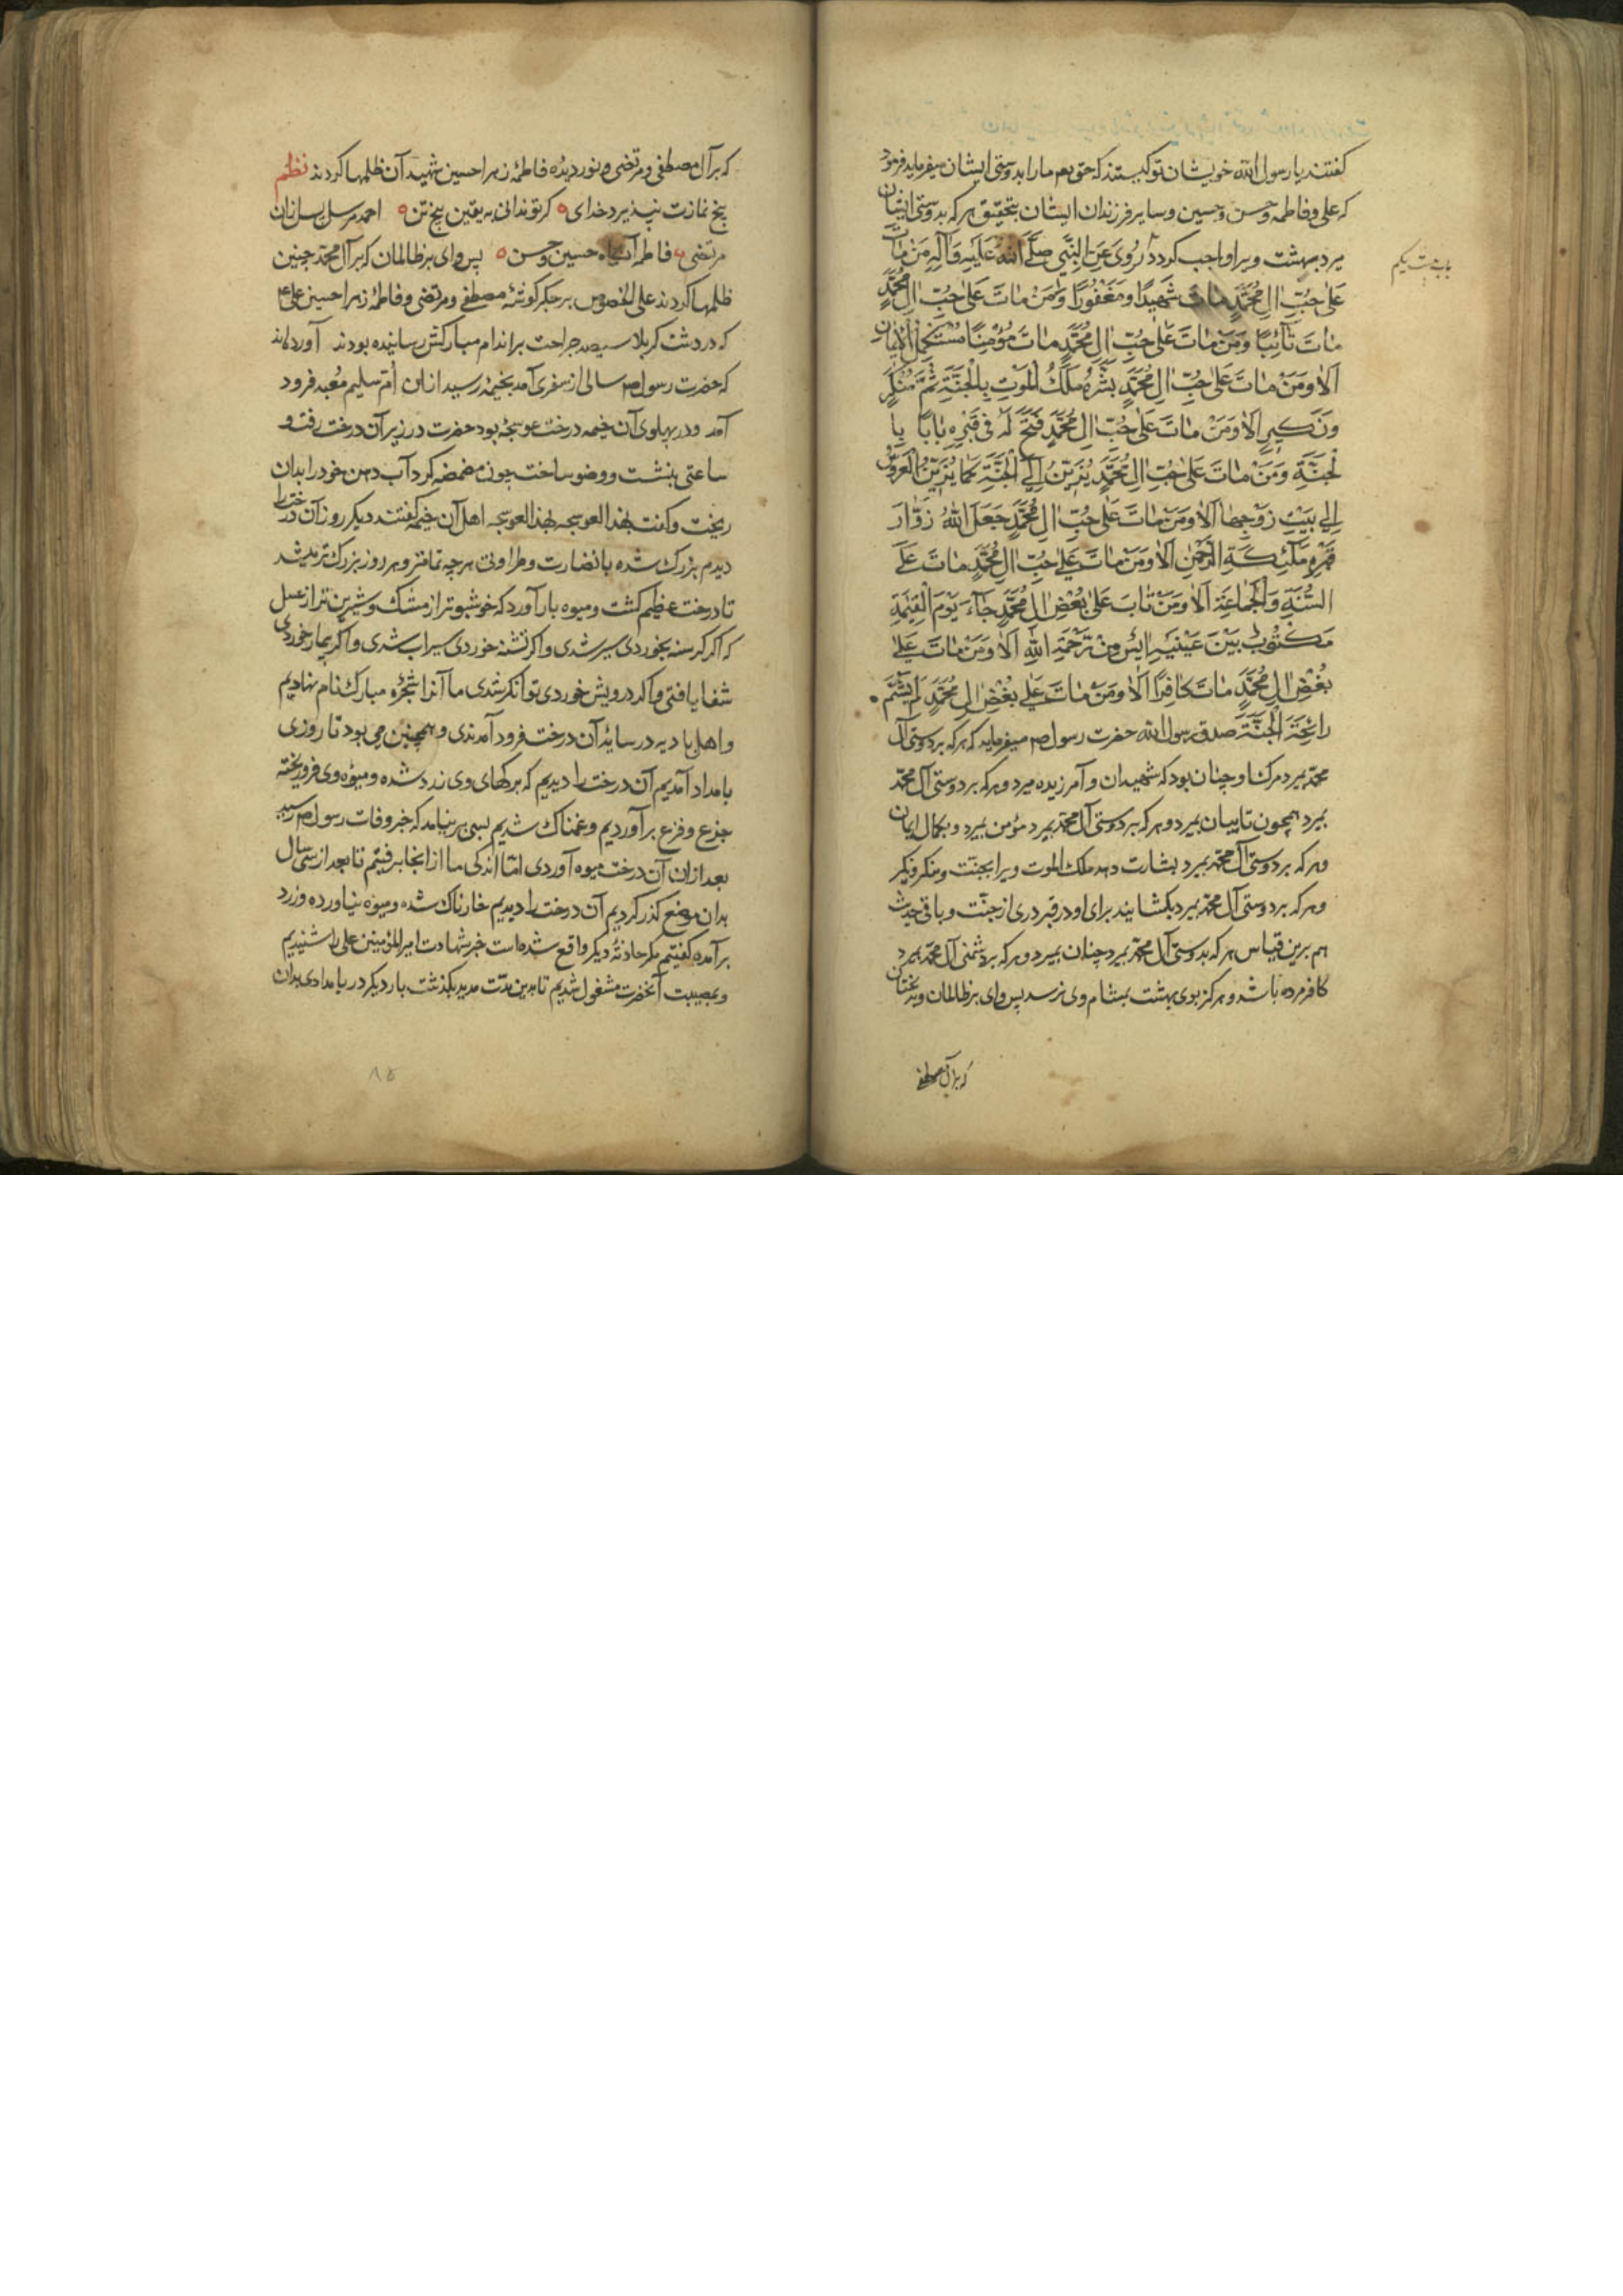 گفتند یا رسول الله خویشان تو کیستند که حق بعم ما را بدوستی ایشان میفرماید فرمود
که علی و فاطمه و حسن و حسین و سایر فرزندان ایشان بتحقیق هر که بدوستی ایشان
میرد بهشت ویرا واجب گردد رُوِیَ عَنِ النَّبِیِّ صَلَّی اللهُ عَلَیهِ وَآلِهِ مَنْ مٰاتَ
عَلیٰ حُبِّ اٰلِ مُحَمَّدٍ مٰاتَ شَهیدًا وَمَغْفُورًا وَمَنْ مٰاتَ عَلیٰ حُبِّ اٰلِ مُحَمَّدٍ
مٰاتَ تٰائِبًا وَمَنْ مٰاتَ عَلیٰ حُبِّ اٰلِ مُحَمَّدٍ مٰاتَ مُؤْمِنًا مُسْتَکْمِلَ الْاِیمٰانِ
اَلاٰ وَمَنْ مٰاتَ عَلیٰ حُبِّ اٰلِ مُحَمَّدٍ بَشَّرَهُ مَلَکُ الْمَوْتِ بِالْجَنَّةِ ثُمَّ مُنْکَرٍ
وَنَکیرٍ اَلاٰ وَمَنْ مٰاتَ عَلیٰ حُبِّ اٰلِ مُحَمَّدٍ فَتَحَ لَهُ فی قَبْرِهِ بٰابًا بِا
لْجَنَّةِ وَمَنْ مٰاتَ عَلیٰ حُبِّ اٰلِ مُحَمَّدٍ یُزَیَّنُ اِلَی الْجَنَّةِ کَمٰا یُزَیَّنُ الْعَرُوسُ
اِلیٰ بَیْتِ زَوْجِهٰا اَلاٰ وَمَنْ مٰاتَ عَلیٰ حُبِّ اٰلِ مُحَمَّدٍ جَعَلَ اللهُ زَوَّارَ
قَبْرِهِ مَلٰئِکَةَ الرَّحْمٰنِ اَلاٰ وَمَنْ مٰاتَ عَلیٰ حُبِّ اٰلِ مُحَمَّدٍ مٰاتَ عَلَی
السُّنَّةِ وَالْجَمٰاعَةِ اَلاٰ وَمَنْ مٰاتَ عَلیٰ بُغْضِ اٰلِ مُحَمَّدٍ جٰاءَ یَوْمَ الْقِیٰمَةِ
مَکْتُوبٌ بَیْنَ عَیْنَیْهِ اٰیِسٌ مِنْ رَحْمَةِ اللهِ اَلاٰ وَمَنْ مٰاتَ عَلیٰ
بُغْضِ اٰلِ مُحَمَّدٍ مٰاتَ کٰافِرًا اَلاٰ وَمَنْ مٰاتَ عَلیٰ بُغْضِ اٰلِ مُحَمَّدٍ لَمْ یَشُمَّ
رٰائِحَةَ الْجَنَّةِ صدق رسول الله حضرت رسول ص میفرماید که هر که بر دوستی آل
محمّد بمیرد مرک او چنان بود که شهیدان و آمرزیده میرد و هر که بر دوستی آل محمّد
بمیرد همچون تایبان بمیرد و هر که بر دوستی آل محمّد بمیرد مؤمن بمیرد و بکمال ایمان
و هر که بر دوستی آل محمّد بمیرد بشارت دهد ملک الموت ویرا بجنّت و منکر و نیکر
و هر که بر دوستی آل محمّد بمیرد بگشایند برای او در قبر دری از جنّت و باقی حدیث
هم برین قیاس هر که بدوستی آل محمّد بمیرد چنان بمیرد و هر که بر دشمنی آل محمّد بمیرد
کافر مرده باشد و هرگز بوی بهشت بمشام وی نرسد پس وای بر ظالمان و بدبختان
که بر آل مصطفی
که بر آل مصطفی و مرتضی و نور دیدهٔ فاطمهٔ زهرا حسین شهید آن ظلمها کردند نظم
پنج نمازت نپذیرد خدای گر تو ندانی به یقین پنج تن احمد مرسل
مرتضی فاطمه حسین و حسن پس وای بر ظالمان که بر آل محمّد چنین
ظلمها کردند علی الخصوص بر جگر گوشهٔ مصطفی و مرتضی و فاطمهٔ زهرا حسین علی ع
که در دشت کربلا سیصد جراحت بر اندام مبارکش رسانیده بودند آورده‌اند
که حضرت رسول ص سالی از سفری آمد بخیمهٔ رسید از ان اُمّ سلیم مُعبد فرود
آمد و در پهلوی آن خیمه درخت عوسجهٔ بود حضرت در زیر آن درخت رفت و
ساعتی بنشست و وضو ساخت چون مضمضه کرد آب دهن خود را بدان
ریخت و گفت لهذا العوسجه لهذا العوسجه اهل آن خیمه گفتند دیگر روز آن درخت را
دیدم بزرگ شده با نضارت و طراوتی هر چه تمامتر و هر روز بزرگ تر میشد
تا درخت عظیم گشت و میوه بار آورد که خوشبوتر از مشک و شیرین تر از عسل
که اگر گرسنه بخوردی سیر شدی و اگر تشنه خوردی سیراب شدی و اگر بیمار خوردی
شفا یافتی و اگر درویش خوردی توانگر شدی ما آنرا شجرهٔ مبارک نام نهادیم
و اهل بادیه در سایهٔ آن درخت فرود آمدندی و همچنین می بود تا روزی
بامداد آمدیم آن درخت را دیدیم که برگهای وی زرد شده و میوهٔ وی فرو ریخته
جزع و فزع برآوردیم و غمناک شدیم بسی بر نیامد که خبر وفات رسول ص رسید
بعد از ان آن درخت میوه آوردی امّا اندکی ما از انجا برفتیم تا بعد از سی سال
بدان موضع گذر کردیم آن درخت را دیدیم خارناک شده و میوهٔ نیاورده و زرد
برآمده گفتیم مگر حادثهٔ دیگر واقع شده است خبر شهادت امیر المؤمنین علی را شنیدیم
و بمصیبت آنحضرت مشغول شدیم تا برین مدّت مدید بگذشت بار دیگر در بامدادی بدان
۸۵